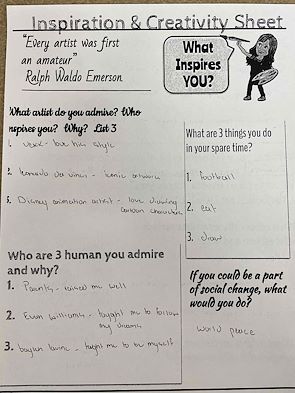 Inspiration & Creativity Sheet
"Every artist was first
an amateur"
Ralph Waldo Emerson
What
Inspires
YOU?
What artist do you admire? Who
nspires you? Why? List 3
1. - love his style
2. Leonardo da vinci - iconic artwork
3. Disney animation artist - love drawing
cartoon characters
What are 3 things you do
in your spare time?
1. football
2. eat
3. draw
Who are 3 human you admire
and why?
1. Parents - raised me well
2. Evan Williams - taught me to follow
my dreams
3. - taught me to be myself
If you could be a part
of social change, what
would you do?
world peace